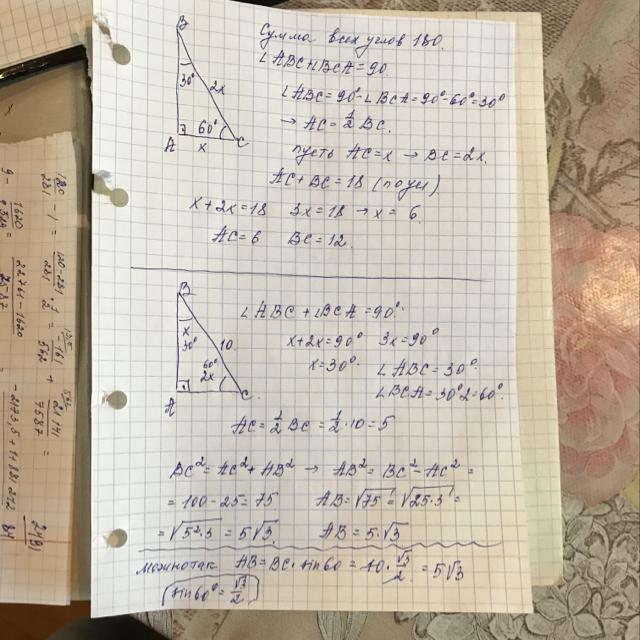 B
30°
2x
60°
A
x
C
Сумма всех углов 180.
∠ABC+∠BCA=90
∠ABC=90°-∠BCA=90°-60°=30°
→ AC=½BC.
пусть AC=x → BC=2x.
AC+BC=18 (по усл)
x+2x=18 3x=18 → x=6.
AC=6 BC=12.
B
x
30°
10
60°
2x
A
C
∠ABC+∠BCA=90°
x+2x=90° 3x=90°
x=30°
∠ABC=30°
∠BCA=30°·2=60°.
AC=½BC=½·10=5
BC²=AC²+AB² → AB²=BC²-AC²=
=100-25=75 AB=√75=√25·3=
=√5²·3=5√3 AB=5·√3
можно так AB=BC·sin60=10·√3/2=5√3
sin60°=√3/2